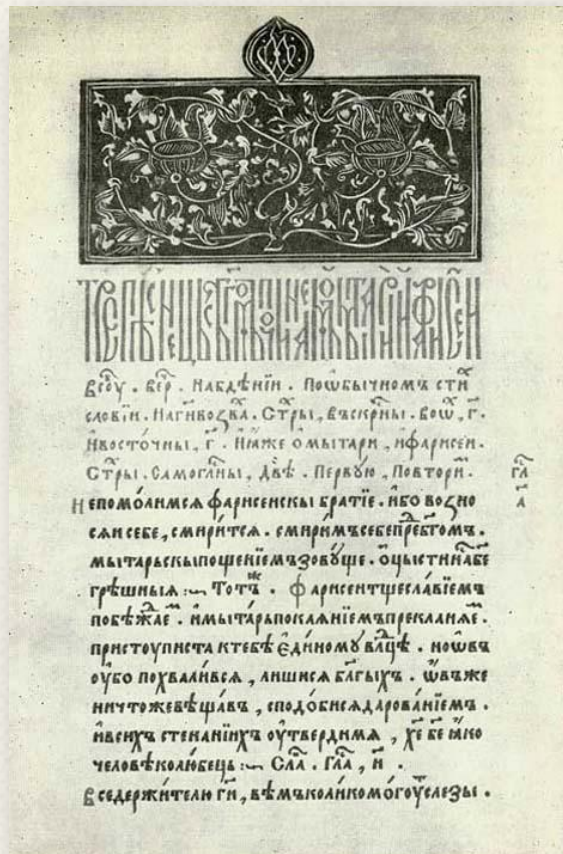 в сѹ҃ . вече҇р . на бдѣнїи . по ѡбычномъ сти҇х
словїи . на г҃и воззва҇х . ст҇ры , въскр҇ны . во ѡ҇с , г҃ .
и҆ восто́чны , г҃ . и҆ и҆́же ѡ҆ мытари , и҆ фарисеи .
ст҇ры . самогла҇сны , двѣ̀ . первую , повтори҇м .
гла҇с
а҃
не помо́лимся фарисеискы братїе . и҆бо возно
сяи себе , смири́тся . смири́мъ себе пре҇д бг҃омъ .
мытарьскы пощенїемъ зовꙋ́ще . ѡ҆цысти ны̀ бж҃е
грѣ́шныя :~ То́тъ҇ж . Фарисеи тщесла́вїемъ
побѣжа́е҇м . и҆ мыта́рь покая́нїемъ прекланя́е҇м .
пристоуписта к тебѣ̀ є҆ди́номꙋ вл҃цѣ . но ѡ҆́въ
оу҆́бо похвали́вся , лиши́ся бл҃гы́хъ . ѡ҆́въ же
ничтоже вѣща́въ , сподо́бися дарова́нїемъ .
и҆ в си́хъ стена́нїихъ оу҆тверди́ мя , хе҃ бе҃ ꙗ҆́ко
человѣколю́бець :~ Сла҇в . Гла҇с , и҃ .
вседержи́телю г҃и , вѣ́мъ коли́ко мо́гоу҇т слезы .